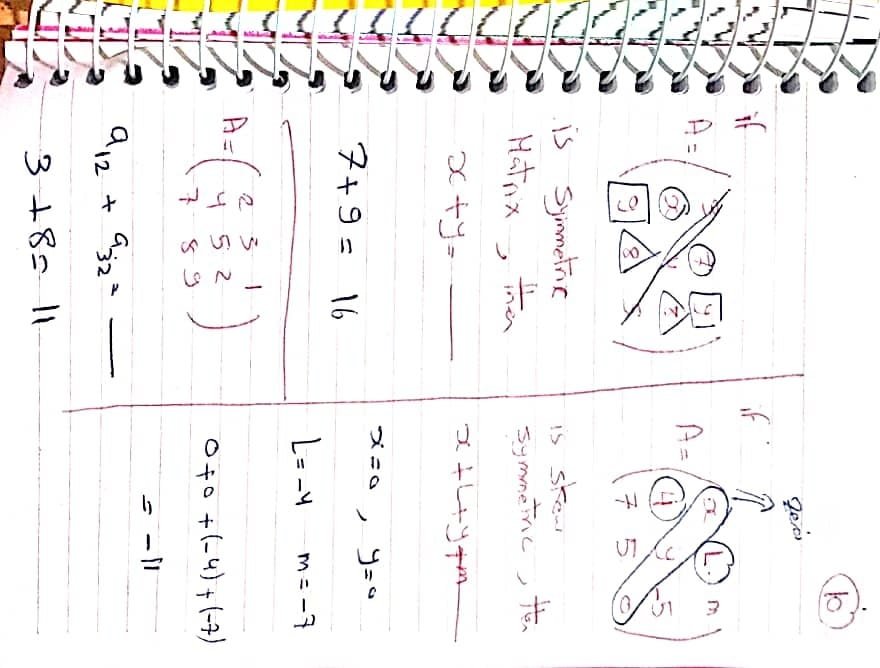 10
if
A = ( 3 7 y
x 4 z
9 8 5 )
is Symmetric
Matrix, then
x + y = ___
7 + 9 = 16
A = ( 2 3 1
4 5 2
7 8 9 )
a12 + a32 = ___
3 + 8 = 11
if zero
A = ( x L m
4 y -5
7 5 0 )
is skew
symmetric, then
x + L + y + m
x = 0, y = 0
L = -4 m = -7
0 + 0 + (-4) + (-7)
= -11